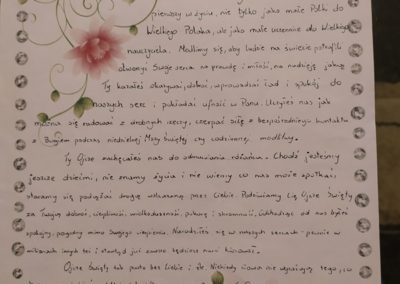 pierwszy w życiu, nie tylko jako małe Polki do
Wielkiego Polaka, ale jako małe uczennice do Wielkiego
nauczyciela. Modlimy się, aby ludzie na świecie potrafili
otworzyć Swoje serca na prawdę i miłość, na nadzieję jaką
Ty kazałeś okazywać, dobroć, wprowadzać ład i spokój do
naszych serc i pokładać ufność w Panu. Uczyłeś nas jak
można się radować z drobnych rzeczy, czerpać siłę z bezpośredniego kontaktu
z Bogiem podczas niedzielnej Mszy Świętej czy codziennej modlitwy.
Ty Ojcze zachęcałeś nas do odmawiania różańca. Choć jesteśmy
jeszcze dziećmi, nie znamy życia i nie wiemy co nas może spotkać,
staramy się podążać drogą wskazaną przez Ciebie. Podziwiamy Cię Ojcze Święty
za Twoją dobroć, cierpliwość, wielkoduszność, pokorę i skromność,
spokojny, pogodny mimo Swego cierpienia. w naszych sercach - pewnie w
milionach innych też i stamtąd już zawsze będziesz nami kierował.
Ojcze Święty tak pusto bez Ciebie i źle. Niekiedy słowa nie wyrażają tego, co